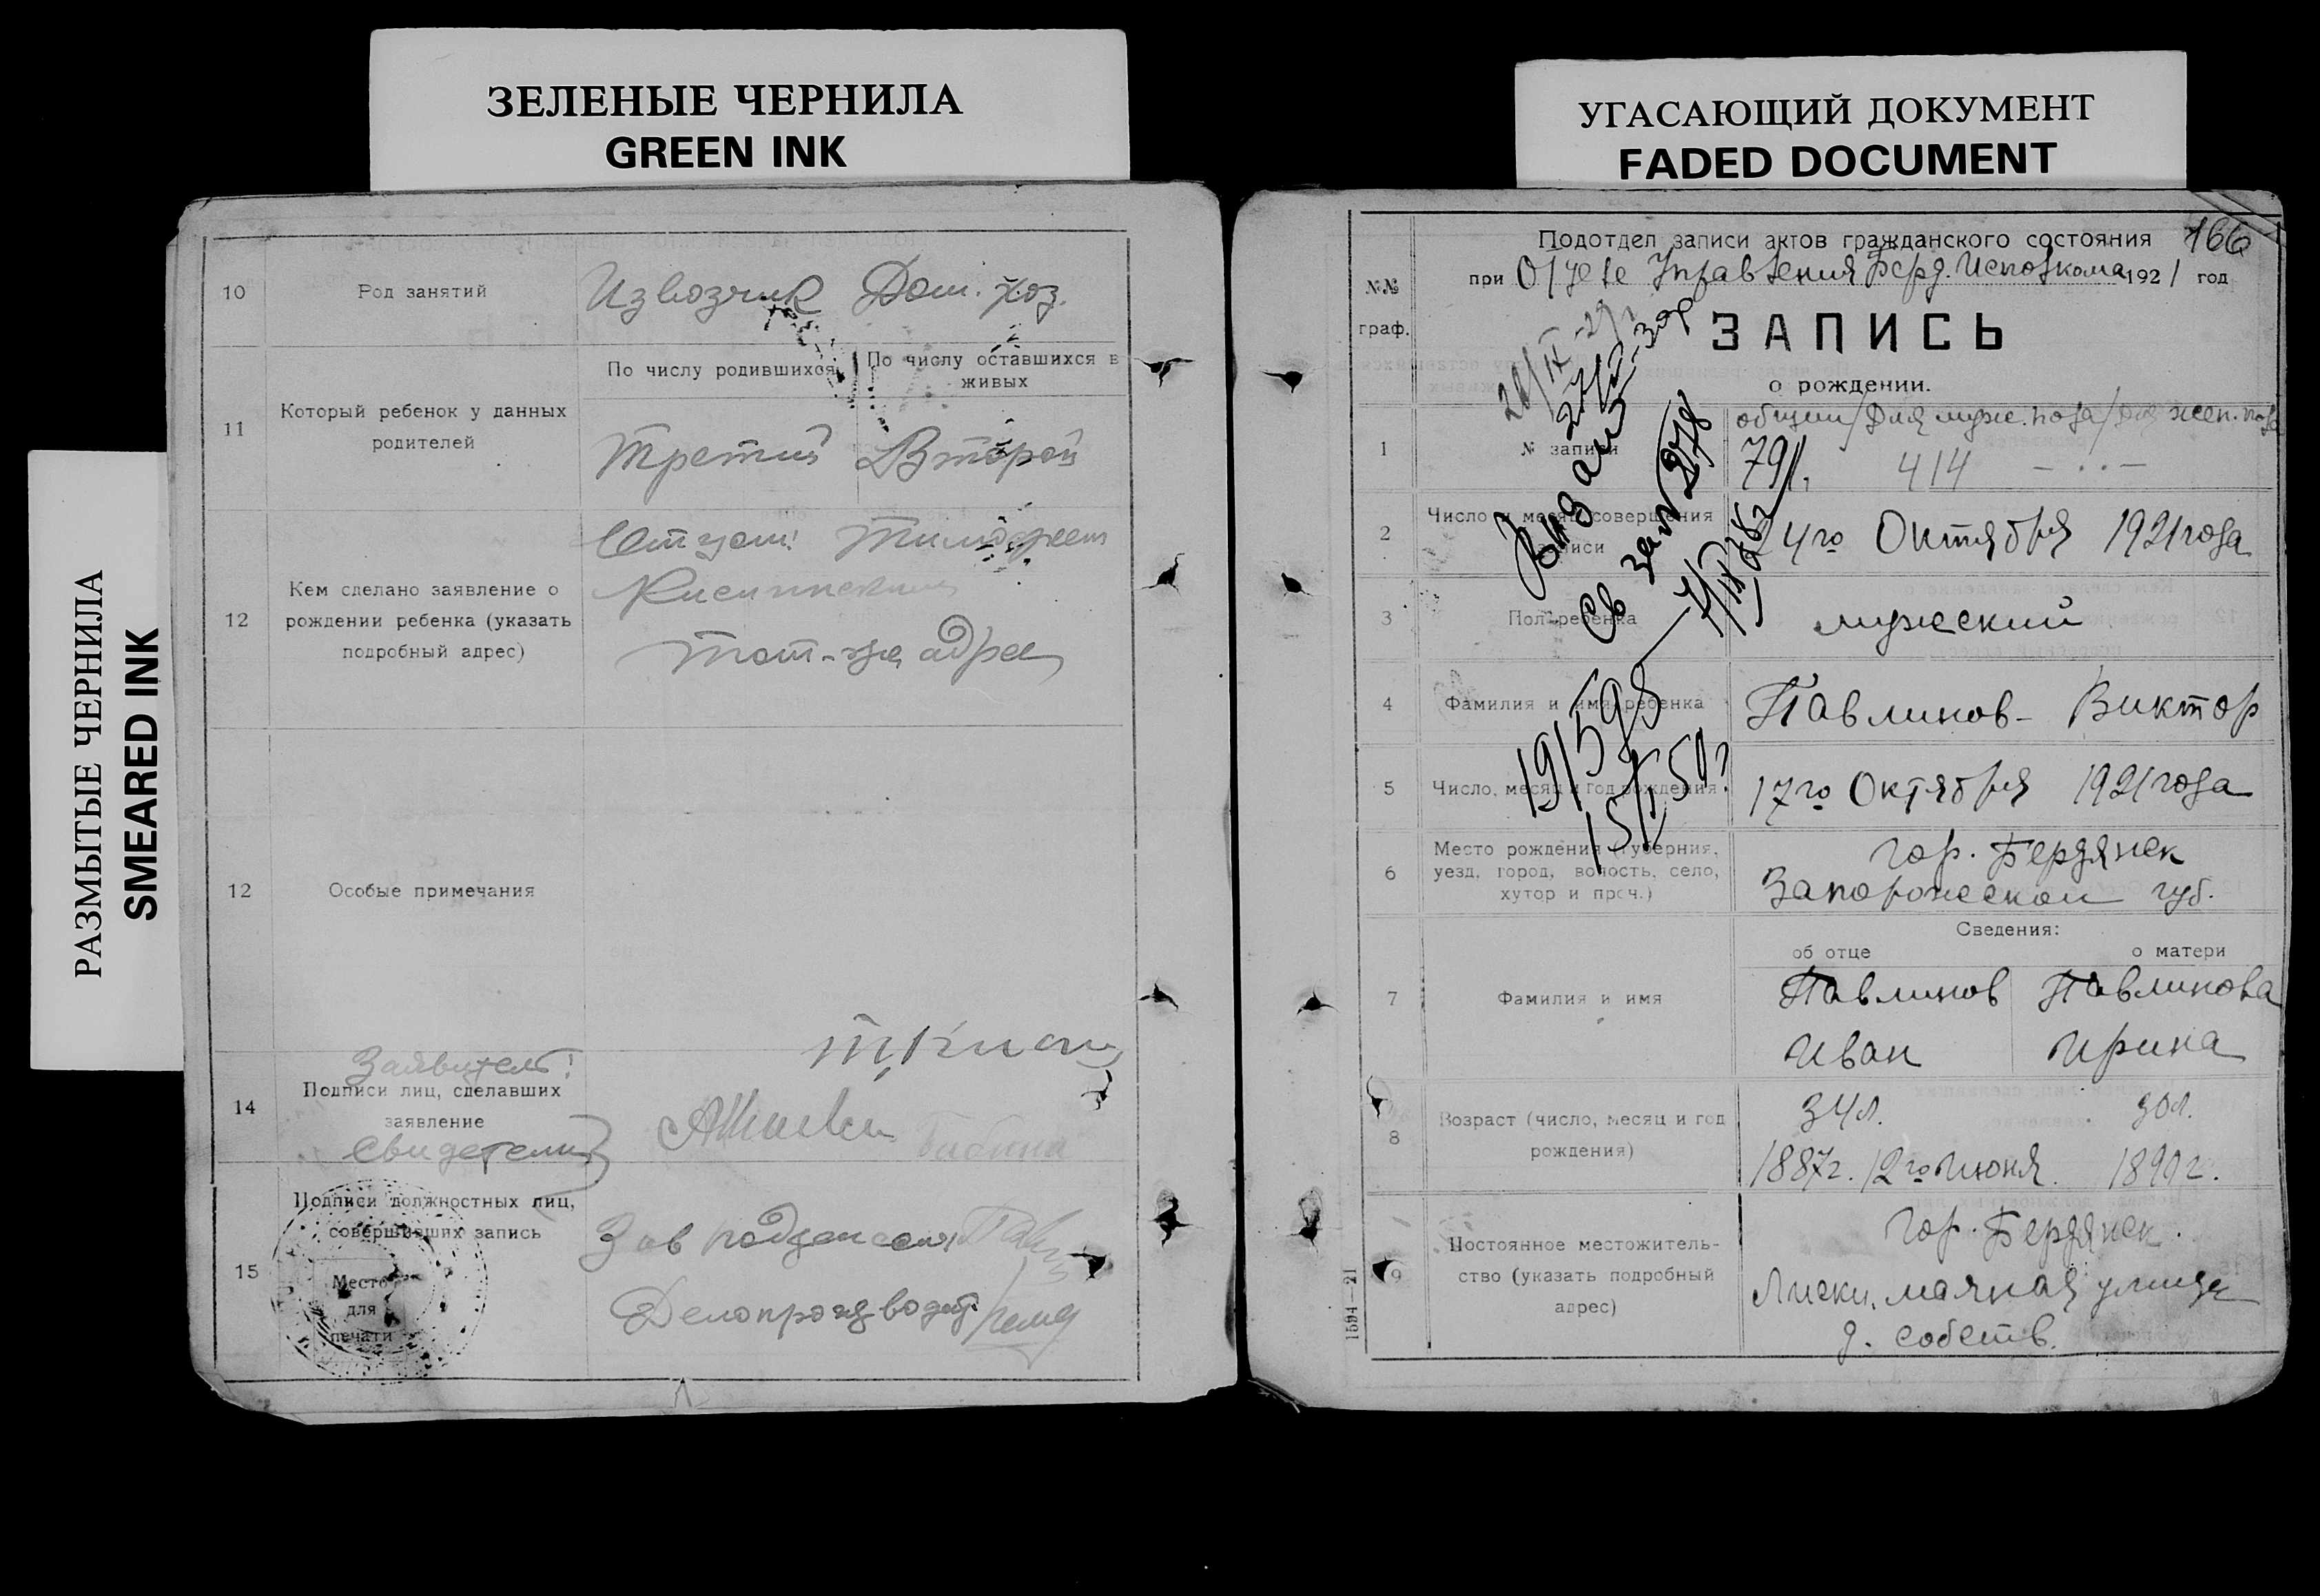 ЗЕЛЕНЫЕ ЧЕРНИЛА
GREEN INK
УГАСАЮЩИЙ ДОКУМЕНТ
FADED DOCUMENT
РАЗМЫТЫЕ ЧЕРНИЛА
SMEARED INK
10
Род занятий
Извозчик Дом. хоз.
11
Который ребенок у данных
родителей
По числу родившихся
По числу оставшихся в
живых
Третий
Второй
12
Кем сделано заявление о
рождении ребенка (указать
подробный адрес)
Отцом:
тот-же адрес
12
Особые примечания
Заявитель:
14
Подписи лиц, сделавших
заявление
свидетели
15
Подписи должностных лиц,
совершивших запись
Место
для
печати
Зав
Делопроизводит.
166
Подотдел записи актов гражданского состояния
при Отделе Управления Берд. Исполкома 1921 год
№№
граф.
ЗАПИСЬ
о рождении.
общий / для муж. пола / для жен. пола
1
№ записи
791. 414 - . . -
2
Число и месяц совершения
записи
24го Октября 1921 года
3
Пол ребенка
мужеский
4
Фамилия и имя ребенка
Павлинов - Виктор
5
Число, месяц и год рождения
17го Октября 1921 года
6
Место рождения (губерния,
уезд, город, волость, село,
хутор и проч.)
гор. Бердянск
Запорожской губ.
Сведения:
об отце
о матери
7
Фамилия и имя
Павлинов
Иван
Павлинова
Ирина
8
Возраст (число, месяц и год
рождения)
34л.
30л.
1887г. 12го Июня.
1890г.
9
Постоянное местожитель-
ство (указать подробный
адрес)
гор. Бердянск.
Лиски, маячная улица
д. собств.
1594—21